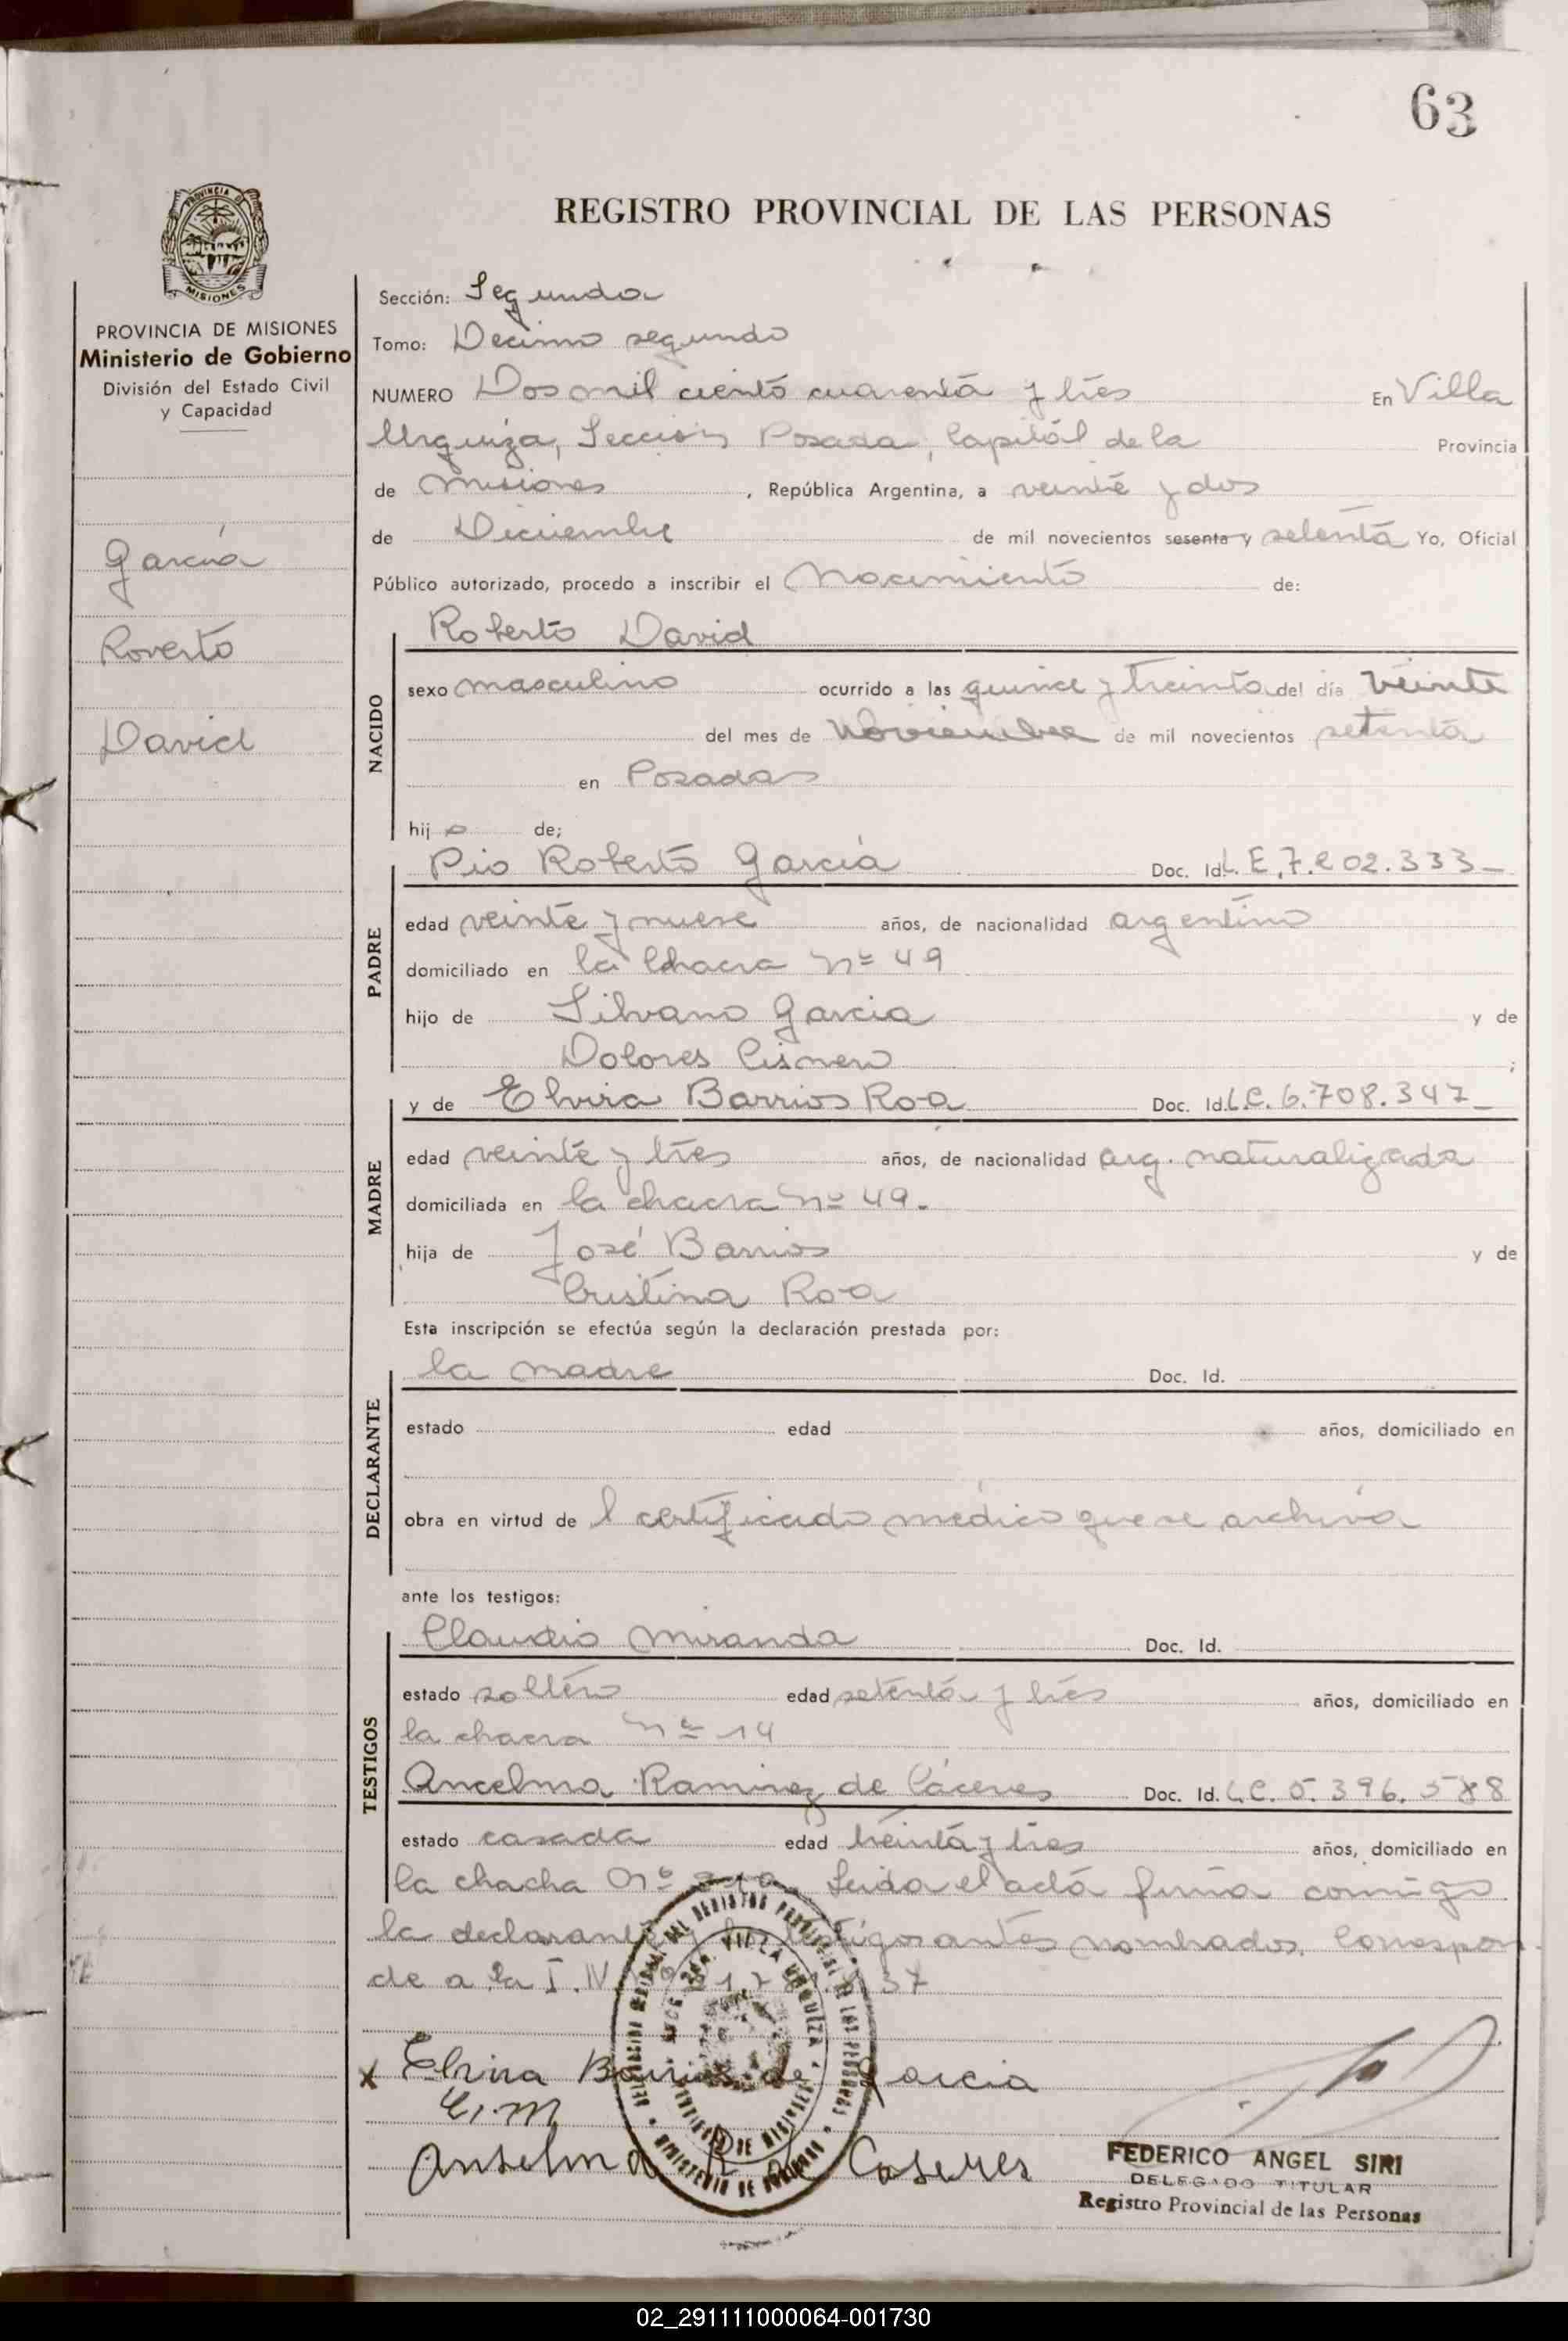 63
REGISTRO PROVINCIAL DE LAS PERSONAS
PROVINCIA DE
MISIONES
PROVINCIA DE MISIONES
Ministerio de Gobierno
División del Estado Civil
y Capacidad
García
Roverto
David
Sección: Segunda
Tomo: Decimo segundo
NUMERO Dos mil ciento cuarenta y tres En Villa
Urquiza, Seccion Posada, Capital de la Provincia
de Misiones, República Argentina, a veinte y dos
de Diciembre de mil novecientos sesenta y setenta Yo, Oficial
Público autorizado, procedo a inscribir el Nacimiento de:
NACIDO
Roberto David
sexo masculino ocurrido a las quince y treinta del día veinte
del mes de Noviembre de mil novecientos setenta
en Posadas
hijo de;
PADRE
Pio Roberto García Doc. Id. L.E.7.202.333_
edad veinte y nueve años, de nacionalidad argentino
domiciliado en la Chacra Nº 49
hijo de Silvano Garcia y de
Dolores Cisnero ;
MADRE
y de Elvira Barrios Roa Doc. Id. L.C. 6.708.347_
edad veinte y tres años, de nacionalidad arg. naturalizada
domiciliada en la chacra Nº 49.
hija de José Barrios y de
Cristina Roa
Esta inscripción se efectúa según la declaración prestada por:
DECLARANTE
la madre Doc. Id.
estado edad años, domiciliado en
obra en virtud de l certificado médico que se archiva
ante los testigos:
TESTIGOS
Claudio Miranda Doc. Id.
estado soltero edad setenta y tres años, domiciliado en
la chacra Nº 14
Ancelma Ramirez de Cáceres Doc. Id. L.C. 5.396.588
estado casada edad treinta y tres años, domiciliado en
la chacha Nº Leida el acta firma conmigo
la declarante y los testigos antes nombrados. Correspon-
de a la I. N.
x Elvira Barrios de Garcia
C.M
Anselma R de Caseres
VILLA URQUIZA
FEDERICO ANGEL SIRI
DELEGADO TITULAR
Registro Provincial de las Personas
02_291111000064-001730